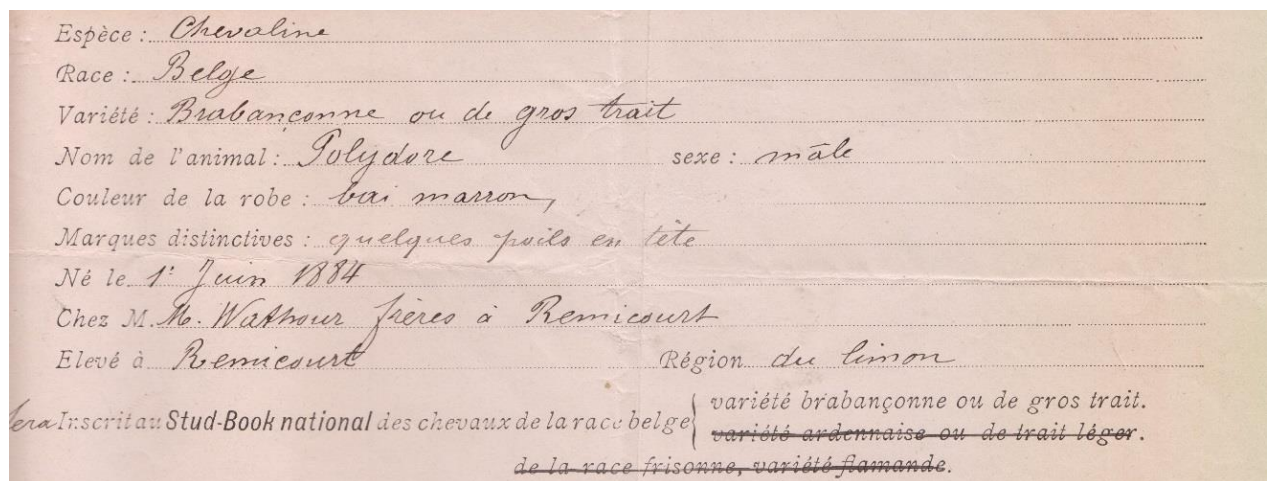 Espèce : Chevaline
Race : Belge
Variété : Brabançonne ou de gros trait
Nom de l'animal : Polydore sexe : mâle
Couleur de la robe : bai marron,
Marques distinctives : quelques poils en tête
Né le 1r Juin 1884
Chez M. M. Wathour frères à Remicourt
Elevé à Remicourt Région du limon
sera Inscrit au Stud-Book national des chevaux de la race belge { variété brabançonne ou de gros trait.
variété ardennaise ou de trait léger.
de la race frisonne, variété flamande.